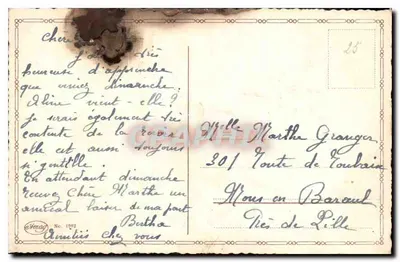 Chère
très
heureuse d'apprendre
que veniez dimanche.
Aline vient-elle?
Je serais également très
contente de la revoir
elle est aussi toujours
si gentille.
En attendant dimanche
recevez Chère Marthe un
amical baiser de ma part
Bertha
Amitiés chez vous
25
Melle Marthe Granger
301 Route de Roubaix
Mons en Barœul
Près de Lille